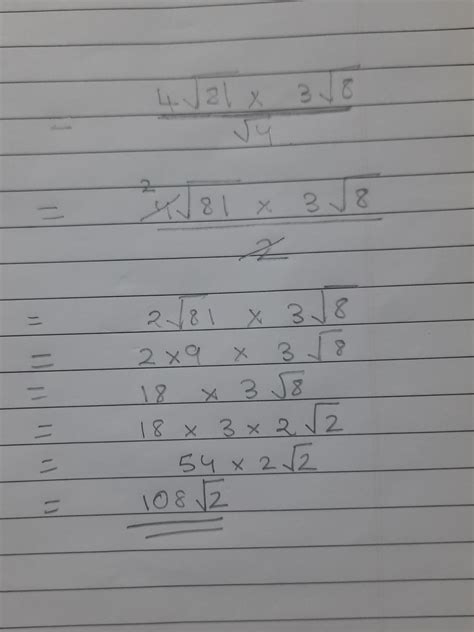 4√81 × 3√8
- √4
2
= 4√81 × 3√8
2
= 2√81 × 3√8
= 2×9 × 3√8
= 18 × 3√8
= 18 × 3 × 2√2
= 54 × 2√2
= 108√2